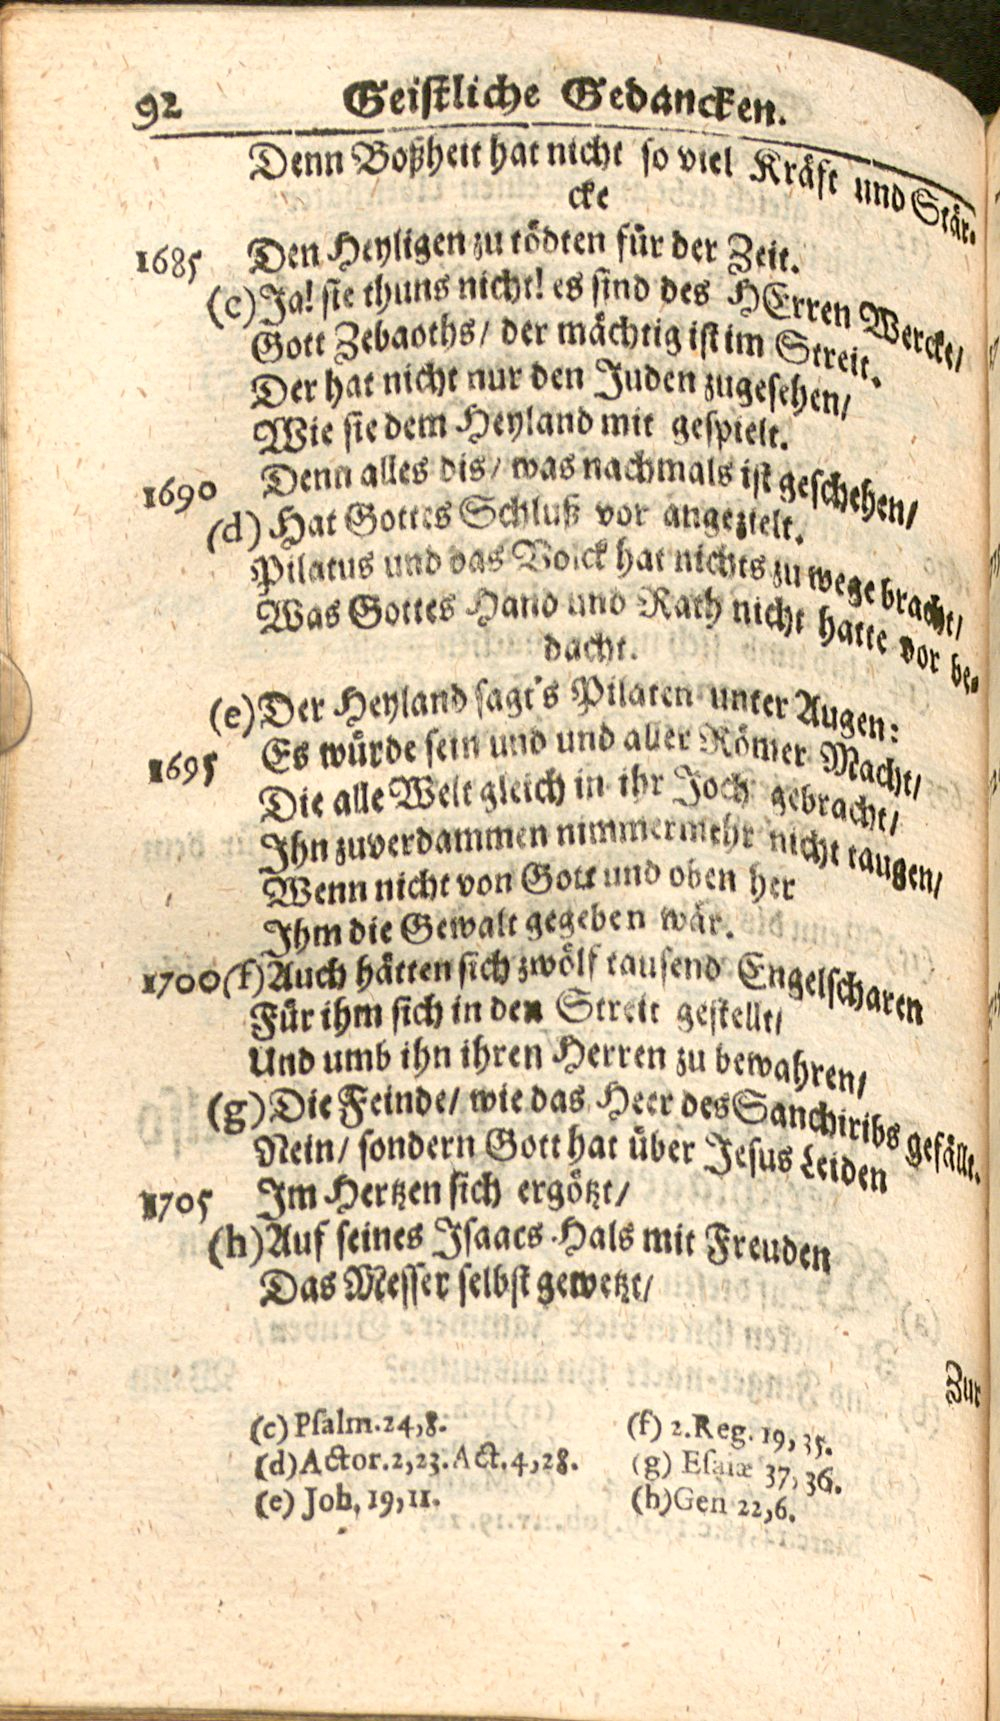 92 Geistliche Gedancken.
Denn Boßheit hat nicht so viel Kräft und Stär-
cke
1685 Den Heyligen zu tödten für der Zeit.
(c) Ja! sie thuns nicht! es sind des HErren Wercke/
Gott Zebaoths/ der mächtig ist im Streit.
Der hat nicht nur den Juden zugesehen/
Wie sie dem Heyland mit gespielt.
1690 Denn alles dis/ was nachmals ist geschehen/
(d) Hat Gottes Schluß vor angezielt.
Pilatus und das Volck hat nichts zu wege bracht/
Was Gottes Hand und Rath nicht hatte vor be-
dacht.
(e) Der Heyland sagt's Pilaten unter Augen:
1695 Es würde sein und und aller Römer Macht/
Die alle Welt gleich in ihr Joch gebracht/
Ihn zuverdammen nimmermehr nicht taugen/
Wenn nicht von Gott und oben her
Ihm die Gewalt gegeben wär.
1700 (f) Auch hätten sich zwölf tausend Engelscharen
Für ihm sich in den Streit gestellt/
Und umb ihn ihren Herren zu bewahren/
(g) Die Feinde/ wie das Heer des Sanchiribs gefällt.
Nein/ sondern Gott hat über Jesus Leiden
1705 Im Hertzen sich ergötzt/
(h) Auf seines Isaacs Hals mit Freuden
Das Messer selbst gewetzt/
Zur
(c) Psalm. 24, 8.
(d) Actor. 2, 23. Act. 4, 28.
(e) Joh. 19, 11.
(f) 2. Reg. 19, 35.
(g) Esaiæ 37, 36.
(h) Gen 22, 6.